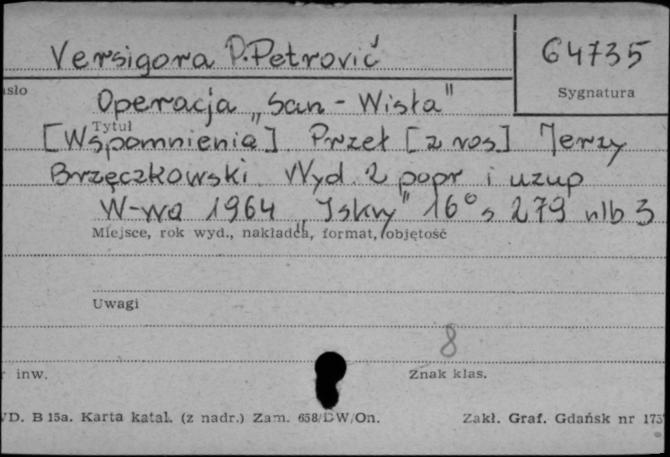 Versigora P. Petrović
64735
Sygnatura
asło
Operacja „San - Wisła"
Tytuł
[Wspomnienia]. Przeł [z ros] Jerzy
Brzęczkowski. Wyd. 2 popr i uzup
W-wa 1964 „Iskry" 16° s 279 nlb 3
Miejsce, rok wyd., nakładca, format, objętość
Uwagi
8
r inw.
Znak klas.
WD. B 15a. Karta katal. (z nadr.) Zam. 658/DW/On.
Zakł. Graf. Gdańsk nr 175